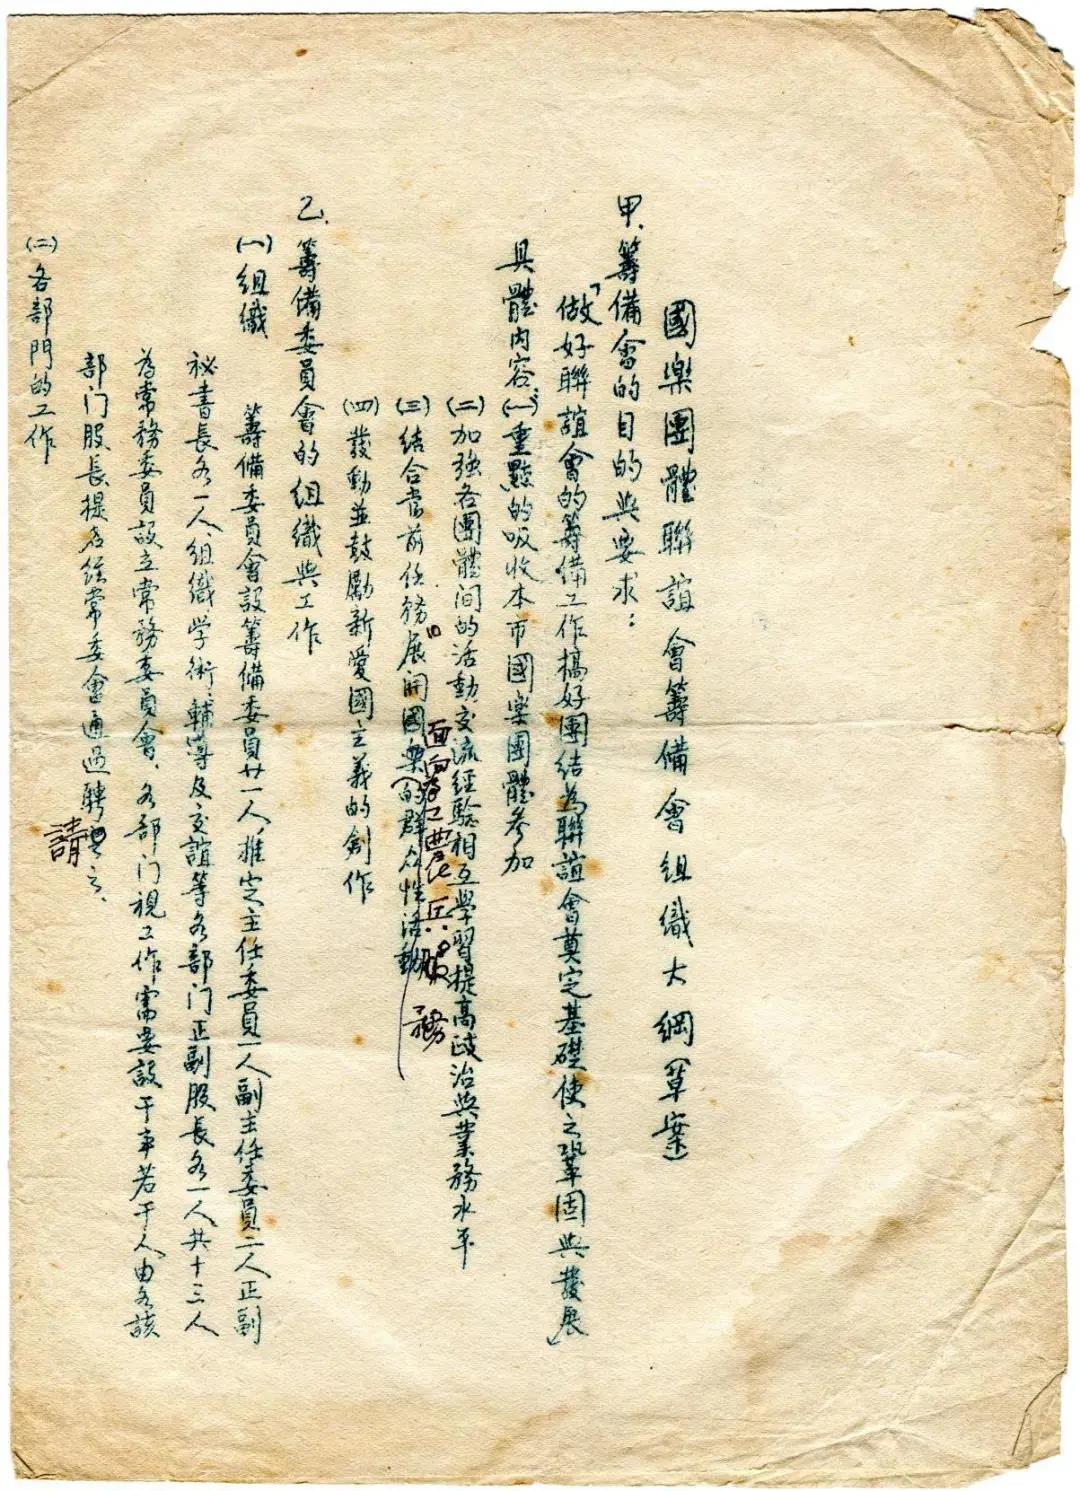 國樂團體聯誼會籌備會組織大綱（草案）
甲、籌備會的目的與要求：
「做好聯誼會的籌備工作搞好團結為聯誼會奠定基礎使之鞏固與發展」
具體內容：(一)重點的吸收本市國樂團體參加
(二)加強各團體間的活動交流經驗相互學習提高政治與業務水平
(三)結合當前任務展開國樂的群众性活動
面向工農兵服務
(四)發動並鼓勵新愛國主義的創作
乙、籌備委員會的組織與工作
(一)組織
籌備委員會設籌備委員廿一人，推定主任委員一人副主任委員二人正副
祕書長各一人、組織学術、輔導及交誼等各部门正副股長各一人共十三人
為常務委員設立常務委員會、各部门視工作需要設干事若干人由各該
部门股長提名經常委會通過聘請之、
(二)各部門的工作